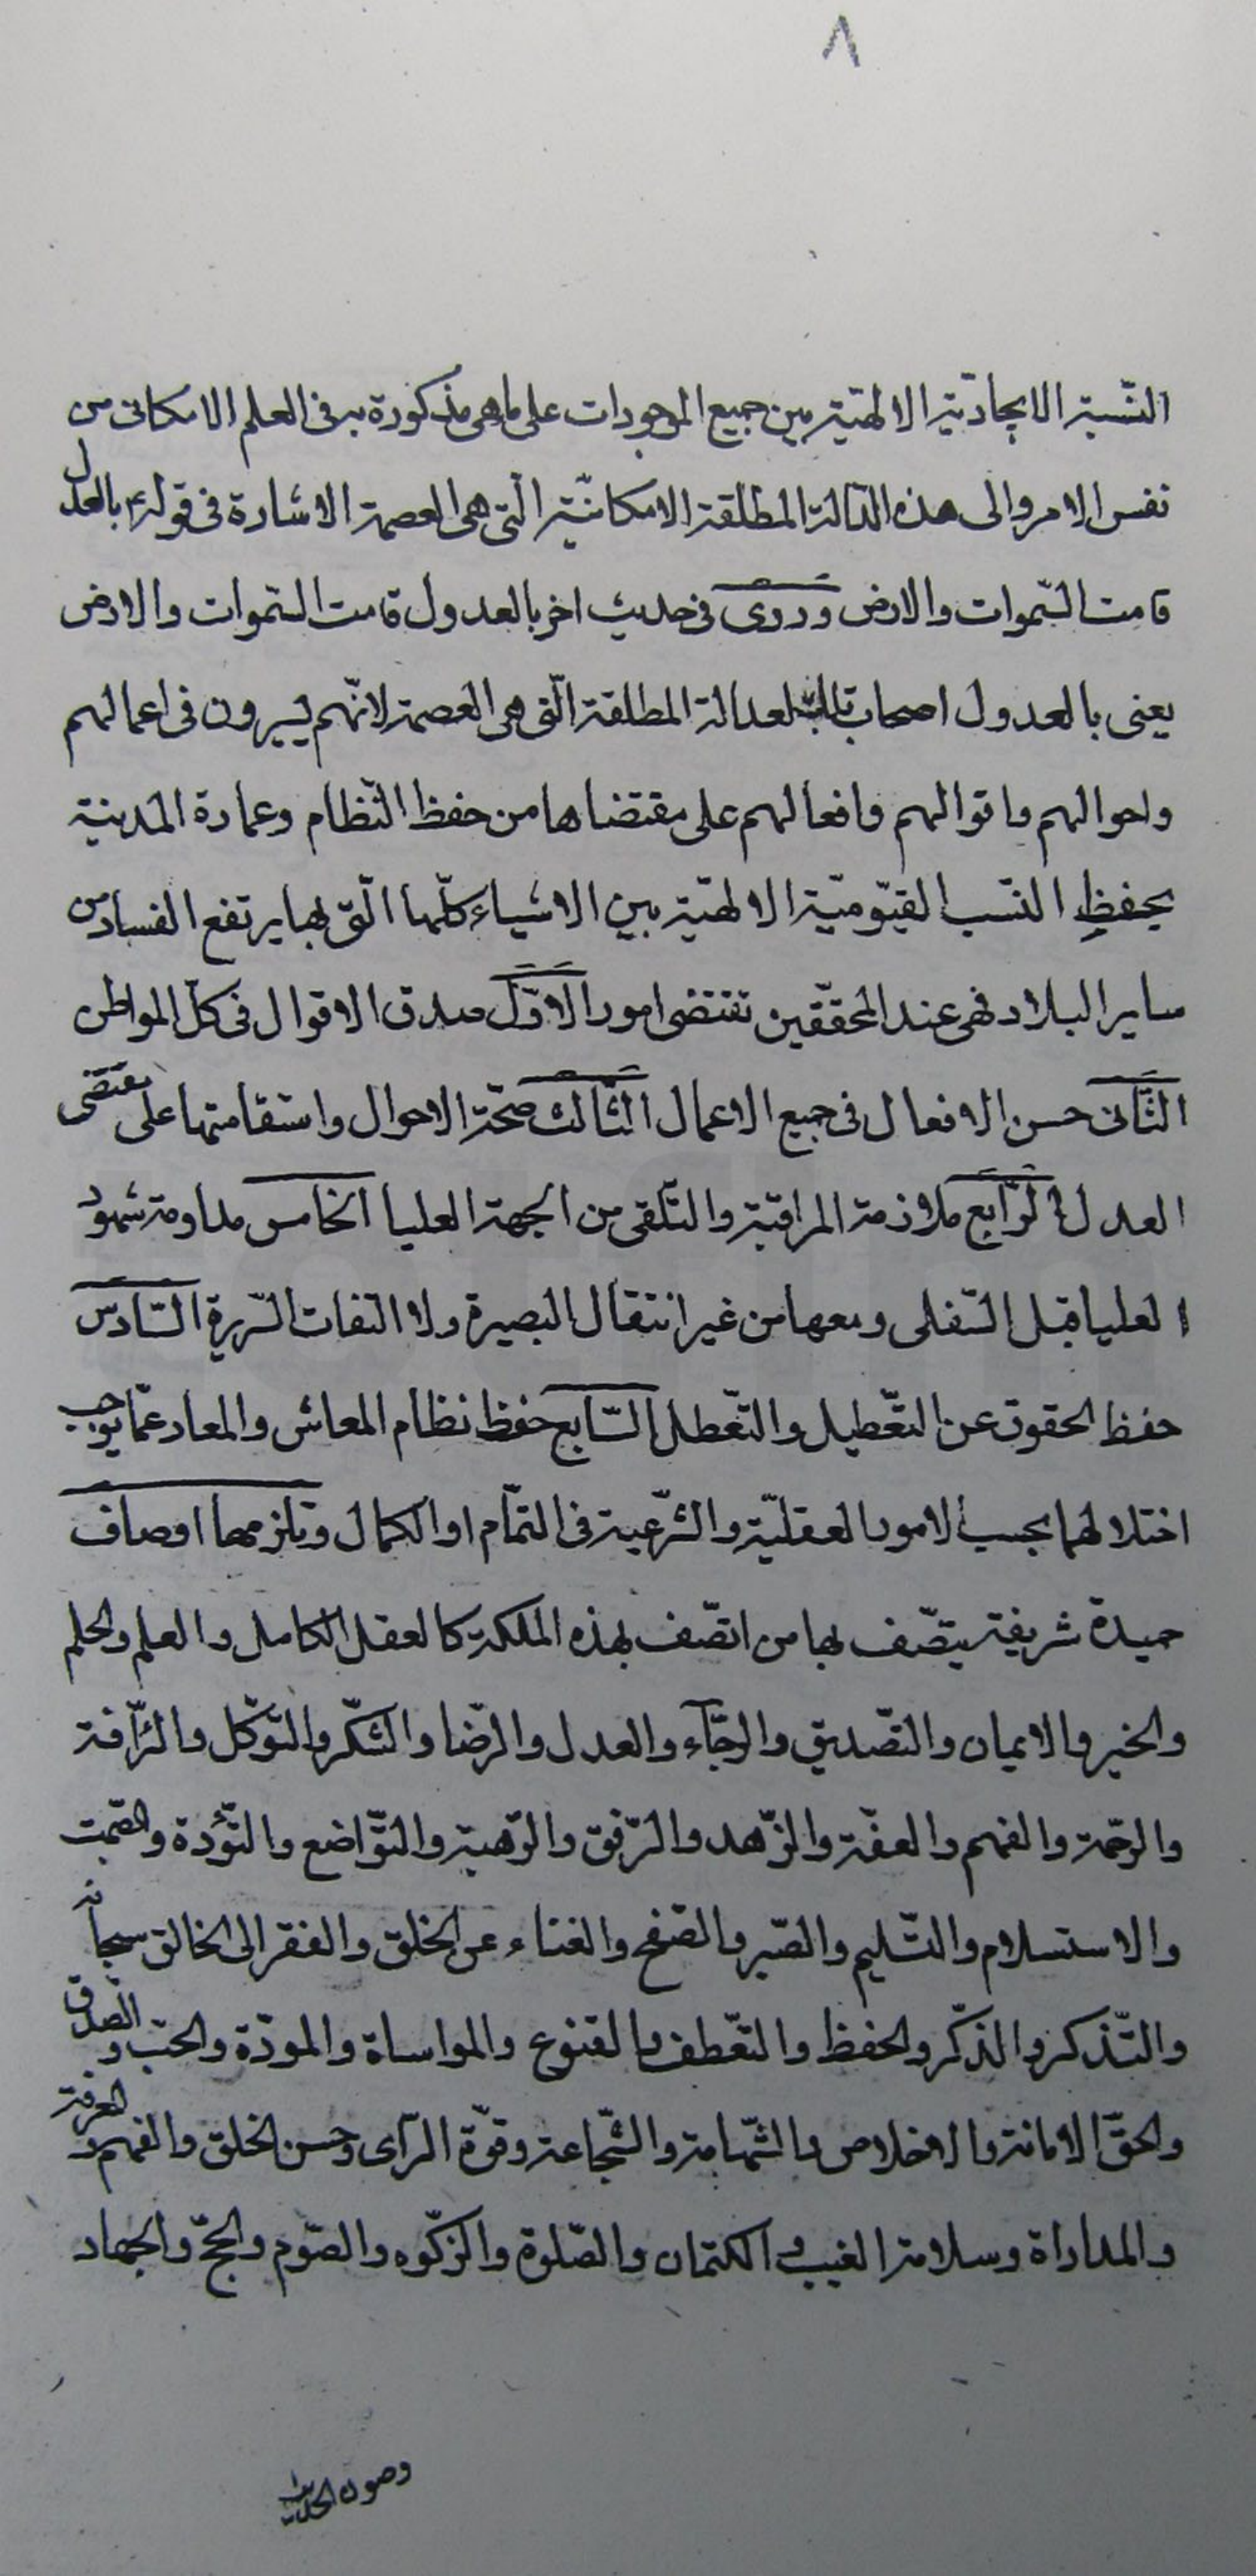 ٨
النّسبة الايجاديّة الالهيّة بين جميع الموجودات على ما هى مذكورة به فى العلم الامكانى من
نفس الامر والى هذه العدالة المطلقة الامكانيّة الّتى هى العصمة الاشارة فى قوله ع بالعدل
قامت السّموات والارض وروى فى حديث اخر بالعدول قامت السّموات والارض
يعنى بالعدول اصحاب تلك العدالة المطلقة الّتى هى العصمة لانّهم يسيرون فى اعمالهم
واحوالهم واقوالهم وافعالهم على مقتضاها من حفظ النّظام وعمارة المدينة
بحفظ النّسب القيّوميّة الالهيّة بين الاشياء كلّها الّتى بها يرتفع الفساد من
ساير البلاد فهى عند المحقّقين تقتضى امورا الاوّل صدق الاقوال فى كلّ المواطن
الثّانى حسن الافعال فى جميع الاعمال الثّالث صحّة الاحوال واستقامتها على مقتضى
العدل الرّابع ملازمة المراقبة والتّلقى من الجهة العليا الخامس مداومة شهود
العليا قبل السّفلى ومعها من غير انتقال البصيرة ولا التفات السّريرة السّادس
حفظ الحقوق عن التّعطيل والتّعطل السّابع حفظ نظام المعاش والمعاد عمّا يوجب
اختلالهما بحسب الامور العقليّة والشّرعية فى التّمام او الكمال وتلزمها اوصاف
حميدة شريفة يتصّف بها من اتصّف بهذه الملكة كالعقل الكامل والعلم والحلم
والخير والايمان والتّصديق والرّجاء والعدل والرّضا والشّكر والتّوكل والرّأفة
والرّحمة والفهم والعفّة والزّهد والرّفق والرّهبة والتّواضع والتّؤدة والصّمت
والاستسلام والتّسليم والصّبر والصّفح والغناء عن الخلق والفقر الى الخالق سبحانه
والتّذكر والذّكر والحفظ والتعّطف والقنوع والمواساة والمودّة والحبّ والصّدق
والحقّ الامانة والاخلاص والشّهامة والشّجاعة وقوّة الرّأى وحسن الخلق والفهم والمعرفة
والمداراة وسلامة الغيب والكتمان والصّلوة والزّكوه والصّوم والحجّ والجهاد
وصون الحديث